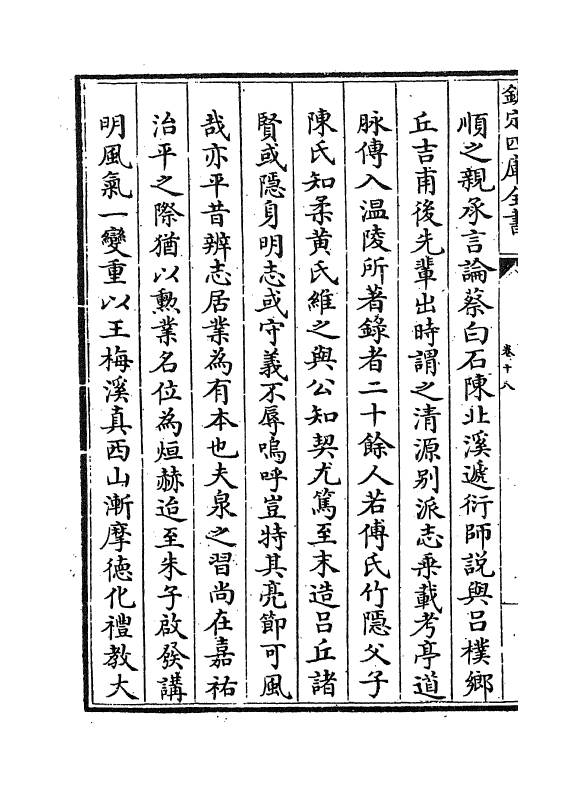 欽定四庫全書
卷十八
順之親承言論蔡白石陳北溪遞衍師説與呂樸鄉
丘吉甫後先輩出時謂之清源别派志乘載考亭道
脉傳入温陵所著錄者二十餘人若傅氏竹隱父子
陳氏知柔黄氏維之與公知契尤篤至末造呂丘諸
賢或隱身明志或守義不辱嗚呼豈特其亮節可風
哉亦平昔辨志居業為有本也夫泉之習尚在嘉祐
治平之際猶以勲業名位為烜赫迨至朱子啟發講
明風氣一變重以王梅溪真西山漸摩德化禮教大